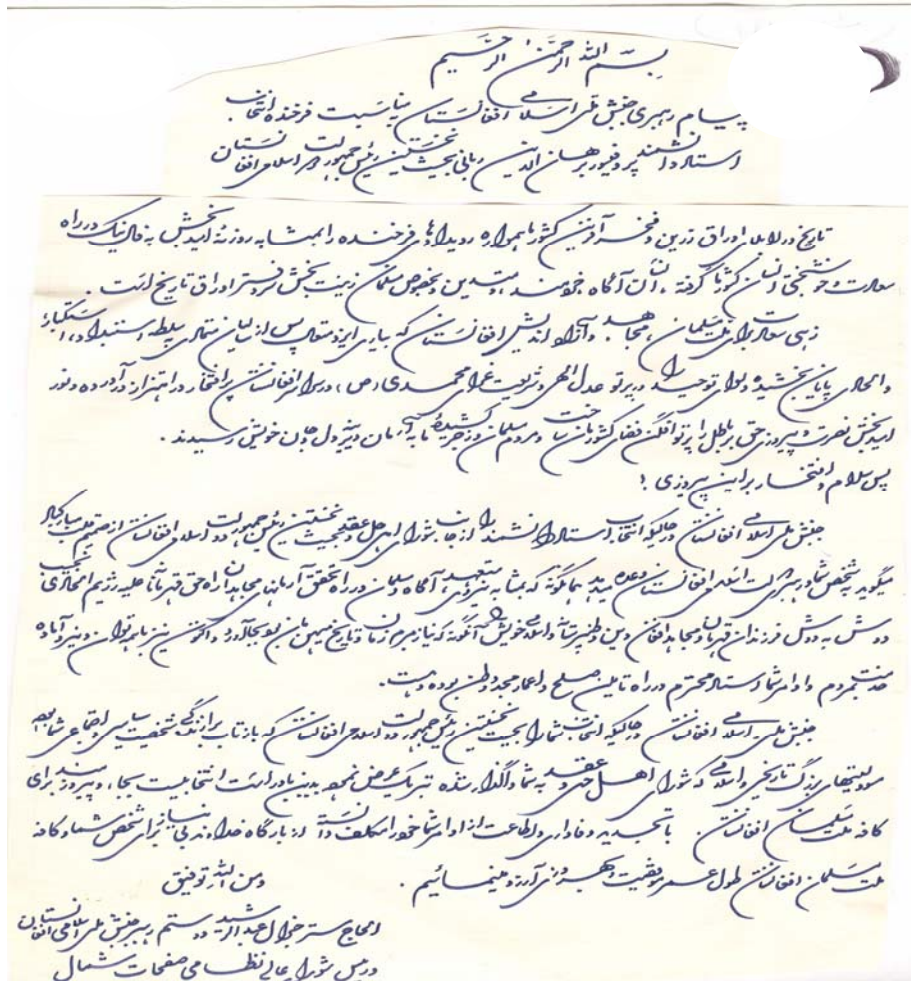 بسم الله الرحمن الرحیم
پیام رهبری جنبش ملی اسلامی افغانستان بمناسبت فرخنده انتخاب
استاد دانشمند پروفیسور برهان الدین ربانی بحیث نخستین رئیس جمهور دولت اسلامی افغانستان
تاریخ در لابلای اوراق زرین و فخر آفرین کشور ما همواره رویدادهای فرخنده را بمثابه روزنه امید بخش به فال نیک در راه
سعادت و خوشبختی انسان کشور ما گرفته، انسان آگاه خردمند، متدین و بخصوص مسلمان زینت بخش سر دفتر اوراق تاریخ است.
زهی سعادت برای ملت مسلمان، مجاهد و آزاد اندیش افغانستان که بیاری ایزد متعال پس از سالیان متمادی سلطه استبداد، استکبار
و الحاد پایان بخشیده و لوای توحید را در پرتو عدل الهی و شریعت غرای محمدی (ص)، در سراسر افغانستان پر افتخار در اهتزاز در آورده و نور
امید بخش نصرت و پیروزی حق بر باطل را پرتو افگن فضای کشور مان ساخت و مردم مسلمان و زجر کشیده ما به آرمان دیرینه دل و جان خویش رسیدند.
پس سلام و افتخار بر این پیروزی!
جنبش ملی اسلامی افغانستان در حالیکه انتخاب استاد دانشمند را از جانب شورای اهل حل و عقد بحیث نخستین رئیس جمهور دولت اسلامی افغانستان از صمیم قلب مبارکباد
میگوید به شخص شما و رهبری دولت اسلامی افغانستان وعده میدهد همانگونه که بمثابه نیروی متعهد، آگاه و مسلمان در راه تحقق آرمانهای مجاهدان راه حق قهرمانانه علیه رژیم الحادی نجیب
دوش به دوش فرزندان قهرمان و مجاهد افغان دین وطنپرستانه و اسلامی خویش را آنگونه که نیاز مبرم زمان و تاریخ میهن مان بود بجا آورد و اکنون نیز با همه توان و نیرو آماده
خدمت بمردم و اوامر شما استاد محترم در راه تامین صلح و اعمار مجدد وطن بوده و هست.
جنبش ملی - اسلامی افغانستان در حالیکه انتخاب شما را بحیث نخستین رئیس جمهور دولت اسلامی افغانستان که بازتاب برازندگی شخصیت سیاسی و اجتماعی شما بوده
مسوولیتهای بزرگ تاریخی و اسلامی که شورای اهل حل و عقد به شما واگذار شده تبریک عرض نموده بدین باور است انتخابیست بجا، و پیروزمند برای
کافه ملت مسلمان افغانستان. با تجدید وفاداری و اطاعت از اوامر شما خود را مکلف دانسته از بارگاه خداوند بی نیاز برای شخص شما و کافه
ملت مسلمان افغانستان طول عمر موفقیت و بهروزی آرزو مینمائیم.
و من الله توفیق
الحاج ستر جنرال عبدالرشید دوستم رهبر جنبش ملی اسلامی افغانستان
و رئیس شورای عالی نظامی صفحات شمال